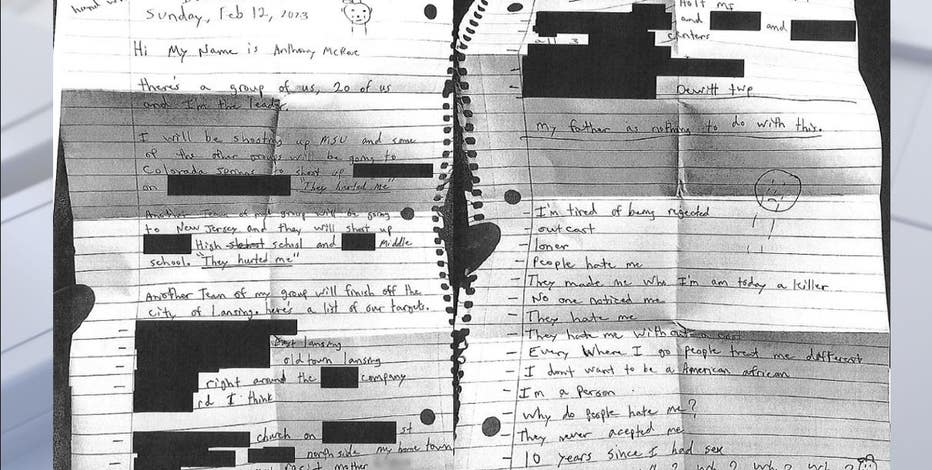 Sunday, Feb 12, 2023
Hi My Name is Anthony McRae
there's a group of us, 20 of us
and I'm the leader.
I will be shooting up MSU and some
of the other groups will be going to
Colorada Springs to shoot up
on "They hurted me"
Another Team of my group will be going
to New Jersey and they will shoot up
High school and Middle
school. "They hurted me"
Another Team of my group will finish off the
city of Lansing. here's a list of our targets.
East lansing
old town lansing
right around the company
rd I think
church on st
north side my home town
mother
Holt MI
and and
all 3 centers
Dewitt twp
My father as nothing to do with this.
- I'm tired of being rejected
- outcast
- loner
- People hate me
- They made me who I'm am today a killer
- No one noticed me
- They hate me
- They hate me without a
- Every Where I go people treat me different
- I dont want to be a American african
- I'm a Person
- Why do people hate me?
- They never acepted me
- 10 years since I had sex